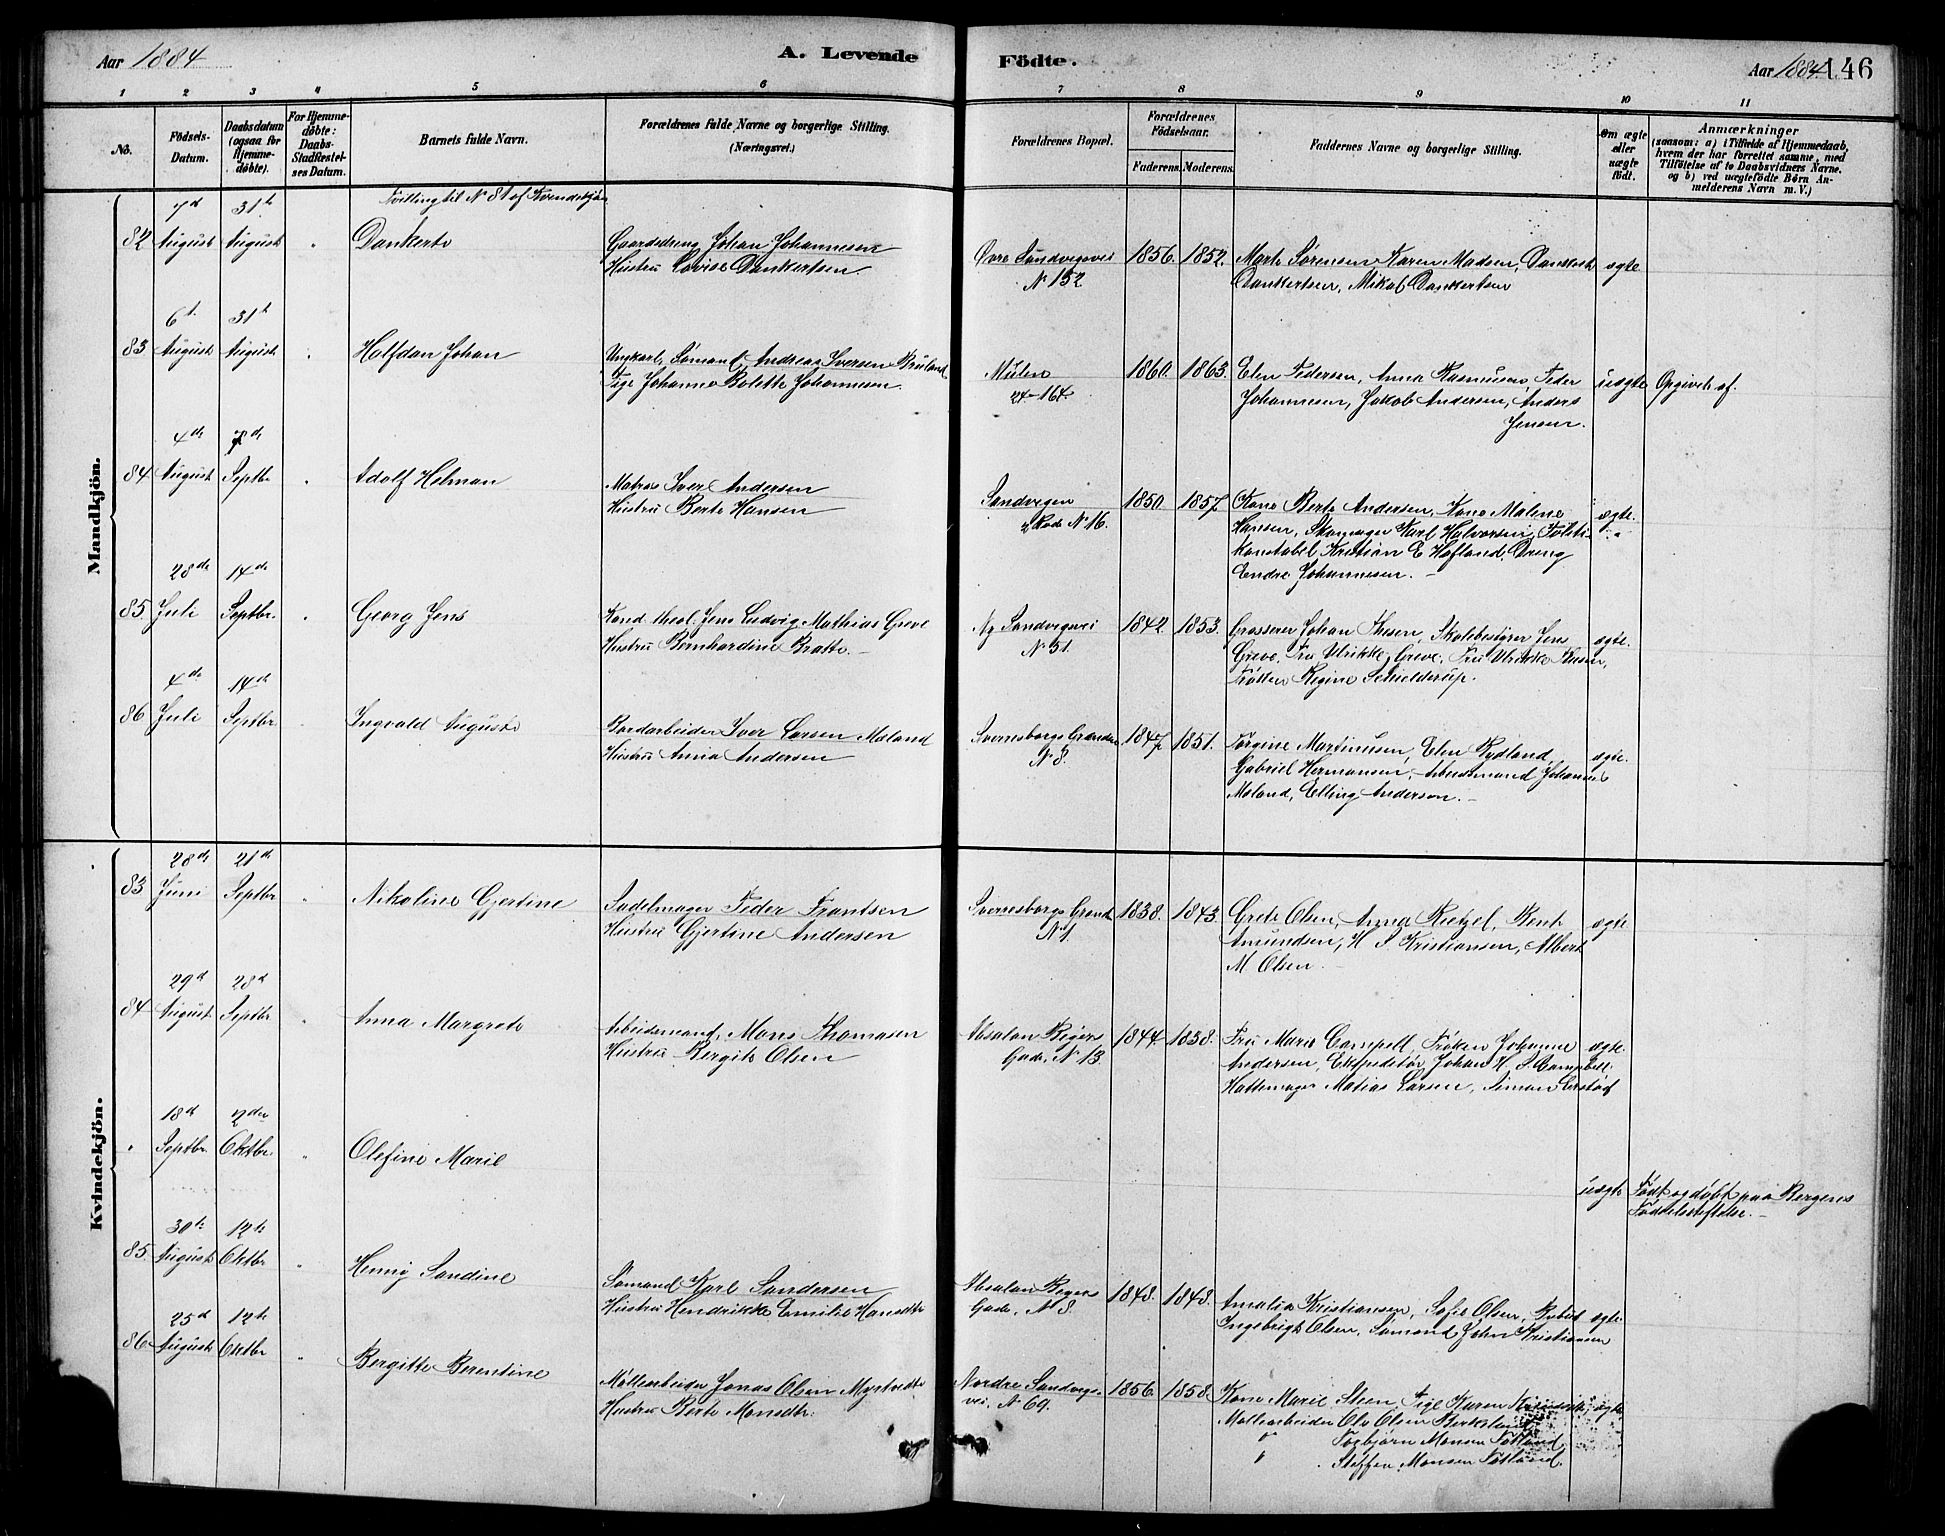 Aar 1884
A. Levende
Födte.
Aar 1884 146
1 2 3 4 5 6 7 8 9 10 11
No.
Födsels-Datum.
Daabsdatum (ogsaa for Hjemmedøbte).
For Hjemmedøbte: Daabs-Stadfæstelses Datum.
Barnets fulde Navn.
Forældrenes fulde Navne og borgerlige Stilling. (Næringsvei.)
Forældrenes Bopæl.
Forældrenes Fødselsaar.
Faderens. Moderens.
Faddernes Navne og borgerlige Stilling.
Om ægte eller uægte født.
Anmærkninger
(saasom: a) i Tilfælde af Hjemmedaab, hvem der har forrettet samme, med Tilføielse af to Daabsvidners Navne. og b) ved uægtefødte Børn Anmelderens Navn m. V.)
Mandkjön.
Tvilling til N 81 af Kvindekjön
7d 31te
82 August August " Dankerto
Gaardsdreng Johan Johannesen
Hustru Lovise Dankertsen
Øvre Sandvigsvei N 152
1856. 1852.
Marte Sørensen Karen Madsen, Dankert
Dankertsen, Mikal Dankertsen
ægte
6te 31te
83 August August " Halfdan Johan
Ungkarl, Sømand Andreas Iversen Bruland
Pige Johanna Bolette Johannesen
Mulen
24-164
1860. 1863.
Elen Pedersen, Anna Rasmusen, Peder
Johannesen, Jakob Andersen, Anders
Jensen.
uægte Opgivet af.
4de 7de
84 August Septbr " Adolf Helman
Matros Iver Andersen
Hustru Berte Hansen
Sandvigen
2 Rode N 16.
1850. 1857.
Kone Berte Andersen, Kone Malene
Hansen, Skomager Karl Halvorsen, Politi-
konstabel Kristian E Hafland, Dreng
Endre Johannesen. -
ægte.
28de 14de
85. Juli Septbr. " Georg Jens
Kand. theol. Jens Ludvig Mathias Greve
Hustru Bernhardine Bratte. -
Ny Sandvigsvei
N 51.
1842. 1853.
Grosserer Johan Thesen, Skolebestyrer Jens
Greve, Fru Ulrikke Greve, Fru Ulrikke Thesen,
Frøken Regine Schielderup.
ægte.
4de 14de
86 Juli Septbr " Ingvald Auguste
Bordarbeider Iver Larsen Maland
Hustru Anna Andersen
Sverresborgs Grænden
N 8.
1847. 1851.
Torgine Martinusen, Elen Rydland,
Gabriel Hermansen, Arbeidsmand Johannes
Maland, Elling Andersen. -
ægte.
Kvindekjön.
28de 21de
83 Juni Septbr " Nikoline Gjertine
Sadelmager Peder Frantsen
Hustru Gjertine Andersen
Sverresborgs Grænd
N 1.
1838. 1843.
Grete Olsen, Anna Rietzel, Bent
Amundsen, H S Kristiansen, Albert
M Olsen. -
ægte
29d 28d
84 August Septbr " Anna Margrete
Arbeidsmand, Mons Thomasen
Hustru Bergite Olsen
Absalon Beiers
Gade, N 13.
1844. 1838.
Fru Marie Campell, Frøken Johanne
Andersen, Ekspeditør Johan H. S. Campbell.
Hattemager Matias Larsen, Simon
ægte.
18d 2den
" Septbr. Oktbr. " Olefine Marie
uægte Født og døbt paa Bergens
Fødselsstiftelse. -
30te 12te
85. August Oktbr " Henny Sandine
Sømand Karl Sandersen
Hustru Hendrikke Emilie Hansdtr
Absalon Beiers
Gade, N 8
1843. 1848.
Amalia Kristiansen, Sofie Olsen,
Ingebrigt Olsen, Sømand John Kristiansen
ægte
25d 12te
86. August Oktbr " Bergitte Berentine
Møllearbeider Jonas Olsen Myrtvedt
Hustru Berte Monsdtr.
Nordre Sandvigs-
vei, N 69.
1856. 1858.
Kone Marie Steen, Pige Karen
Møllearbeider Ole Olsen
" Torbjørn Monsen Totland
" Steffen Monsen Totland.
ægte